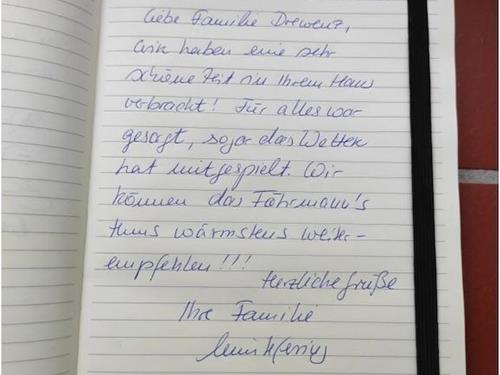 Liebe Familie Drewenz,
wir haben eine sehr
schöne Zeit in Ihrem Haus
verbracht! Für alles war
gesorgt, sogar das Wetter
hat mitgespielt. Wir
können das Fährmann's
Huus wärmstens weiter-
empfehlen!!!
Herzliche Grüße
Ihre Familie